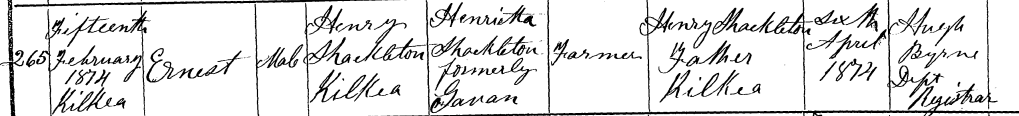 265
Fifteenth
February
1874
Kilkea
Ernest
Male
Henry
Shackleton
Kilkea
Henrietta
Shackleton
formerly
Gavan
Farmer
Henry Shackleton
Father
Kilkea
Sixth
April
1874
Hugh
Byrne
Dept
Registrar